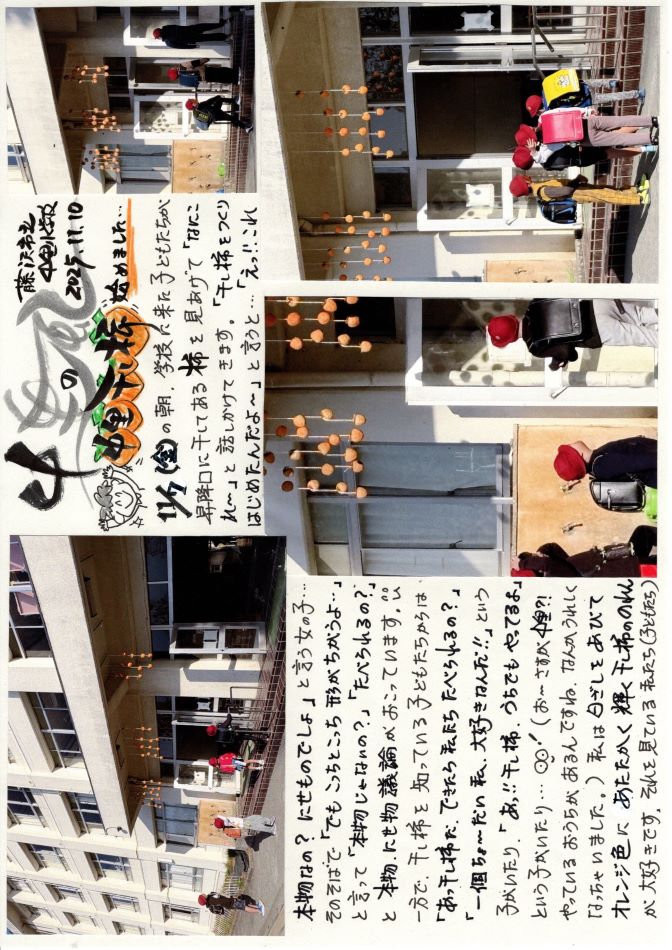 藤沢市立
中里小学校
2025.11.10
中里の風
中里干し柿 始めました…
11/7(金)の朝、学校に来た子どもたちが
昇降口に干してある柿を見あげて「なにこ
れ〜」と話しかけてきます。「干し柿をつくり
はじめたんだよ〜」と言うと…「えっ!!これ
本物なの?にせものでしょ」と言う女の子…
そのそばで「でもこっちとこっち形がちがうよ…」
と言って「本物じゃないの?」「たべられるの?」
と本物、にせ物議論がおこっています。
一方で、干し柿を知っている子どもたちからは、
「あっ干し柿だ、できたら私たちたべられるの?」
「一個ちょ〜だい私、大好きなんだ!!」という
子がいたり、「あっ!!干し柿、うちでもやってるよ」
という子がいたり…(お〜さすが中里?!
やっているおうちがあるんですね、なんかうれしく
なっちゃいました。)私は日ざしをあびて
オレンジ色にあたたかく輝く干し柿ののれん
が大好きです。それを見ている私たち(子どもたち)